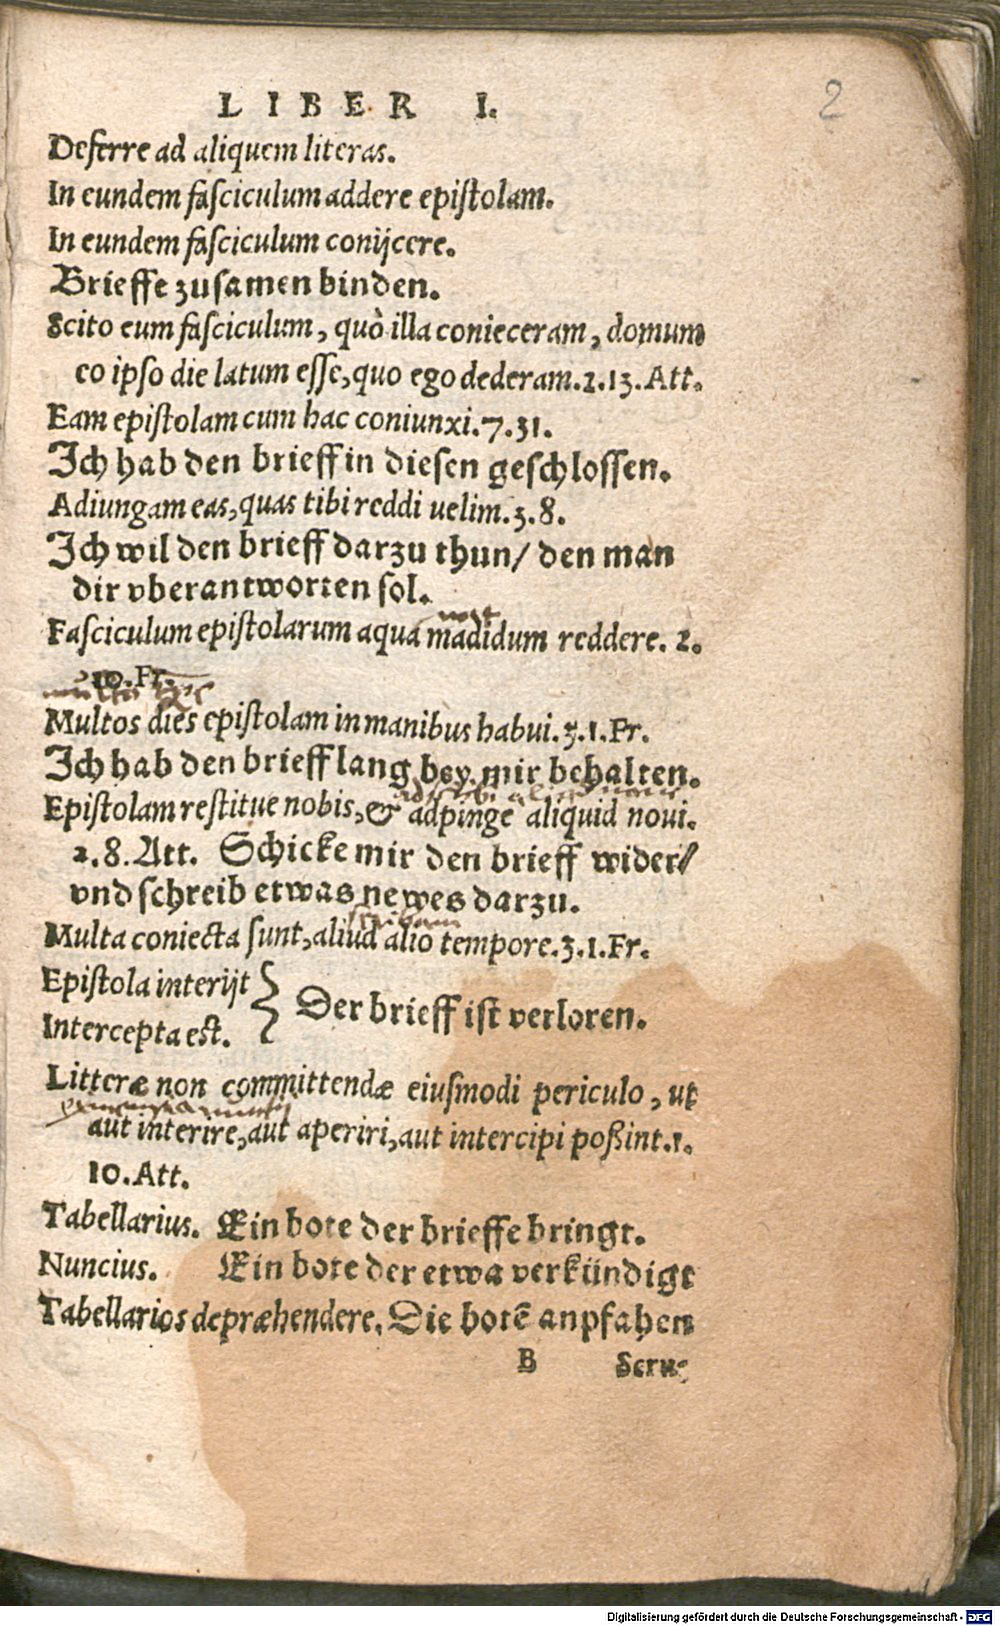 LIBER I.
2
Deferre ad aliquem literas.
In eundem faſciculum addere epiſtolam.
In eundem faſciculum conijcere.
Brieffe zuſamen binden.
Scito eum faſciculum, quò illa conieceram, domum
eo ipſo die latum eſſe, quo ego dederam. 2. 13. Att.
Eam epiſtolam cum hac coniunxi. 7. 31.
Ich hab den brieff in dieſen geſchloſſen.
Adiungam eas, quas tibi reddi uelim. 3. 8.
Ich wil den brieff darzu thun / den man
dir vberantworten ſol.
Faſciculum epiſtolarum aqua madidum reddere. 2.
10. Fr.
Multos dies epiſtolam in manibus habui. 3. 1. Fr.
Ich hab den brieff lang bey mir behalten.
Epiſtolam reſtitue nobis, & adpinge aliquid noui.
2. 8. Att. Schicke mir den brieff wider /
vnd ſchreib etwas newes darzu.
ſcribam
Multa coniecta ſunt, aliud alio tempore. 3. 1. Fr.
Epiſtola interijt
Intercepta eſt.
} Der brieff iſt verloren.
Litteræ non committendæ eiuſmodi periculo, ut
aut interire, aut aperiri, aut intercipi poßint. 1.
10. Att.
Tabellarius. Ein bote der brieffe bringt.
Nuncius. Ein bote der etwa verkündigt
Tabellarios depræhendere. Die botẽ anpfahen
B Scru-
Digitalisierung gefördert durch die Deutsche Forschungsgemeinschaft - DFG